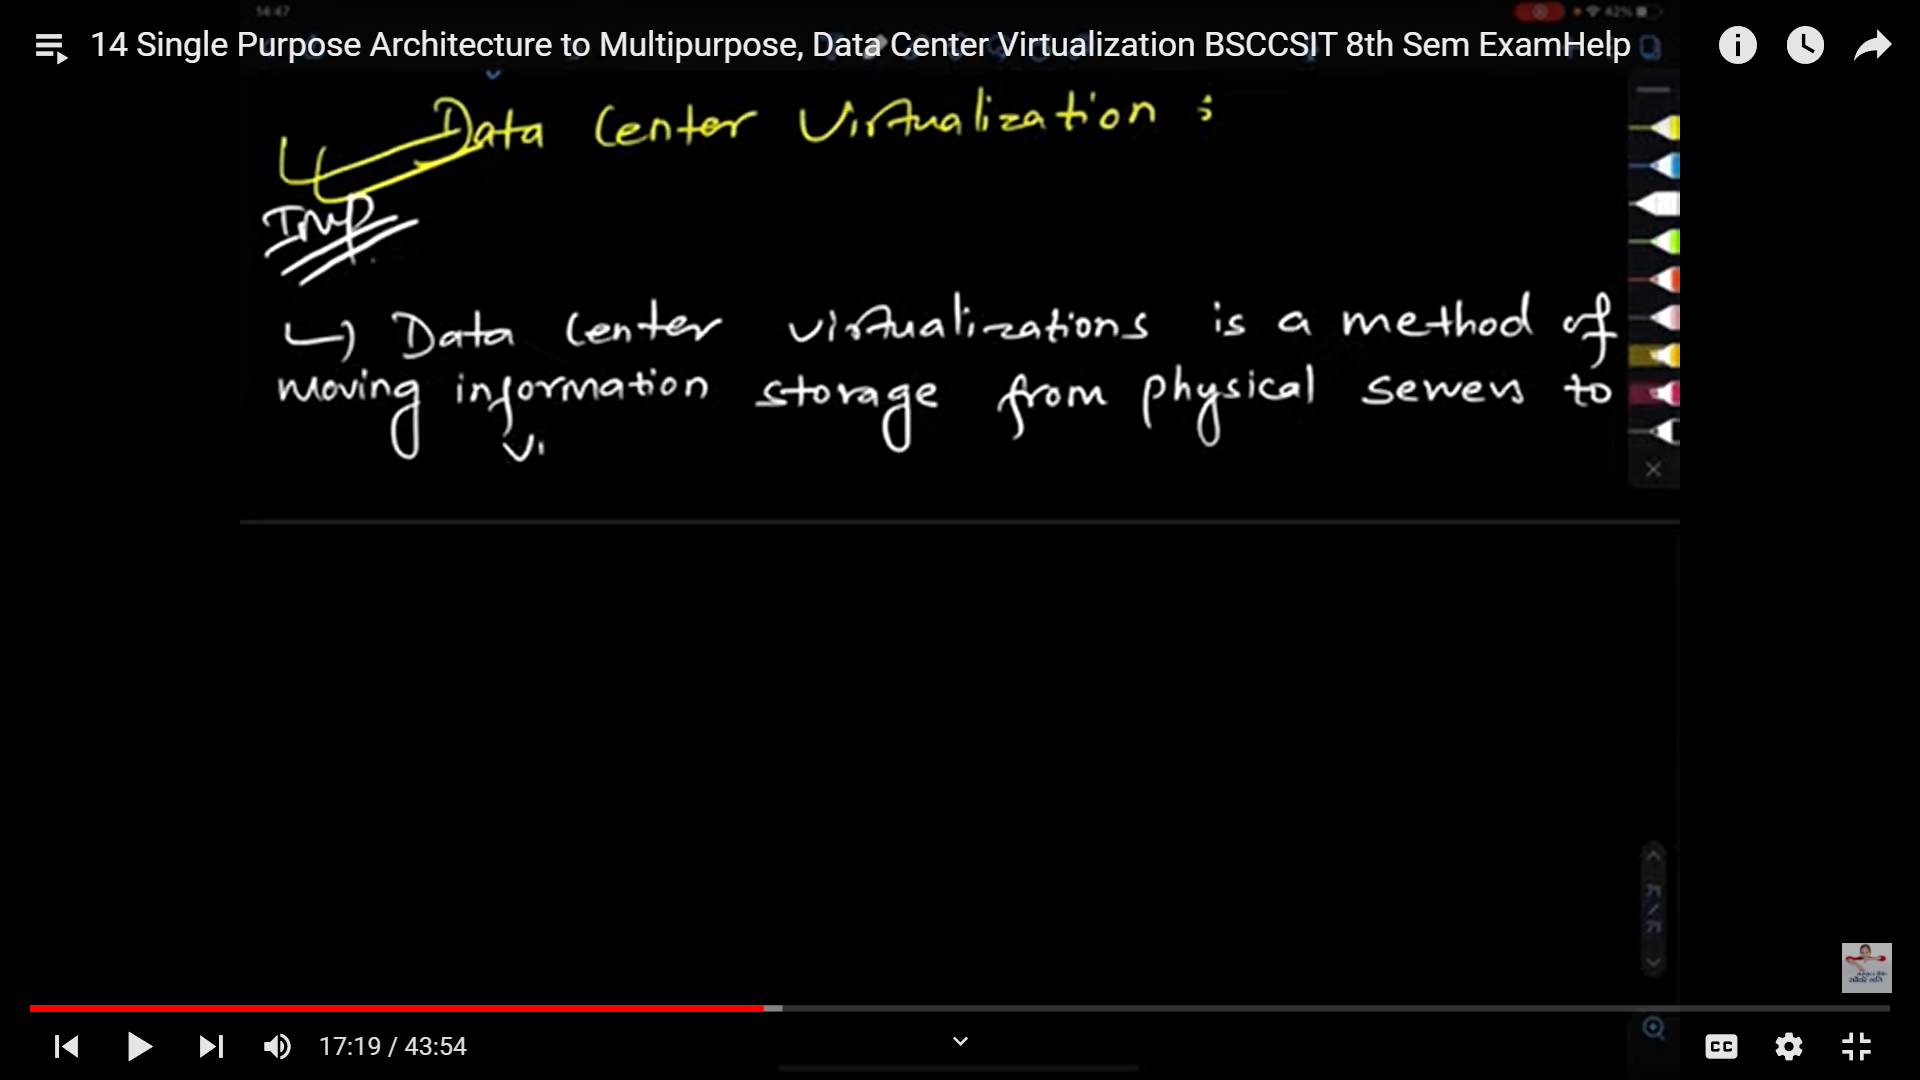 14:47
42%
14 Single Purpose Architecture to Multipurpose, Data Center Virtualization BSCCSIT 8th Sem ExamHelp
Data Center Virtualization :
Imp
Data Center virtualizations is a method of
moving information storage from physical servers to
Vi
71 / 71
17:19 / 43:54
CC